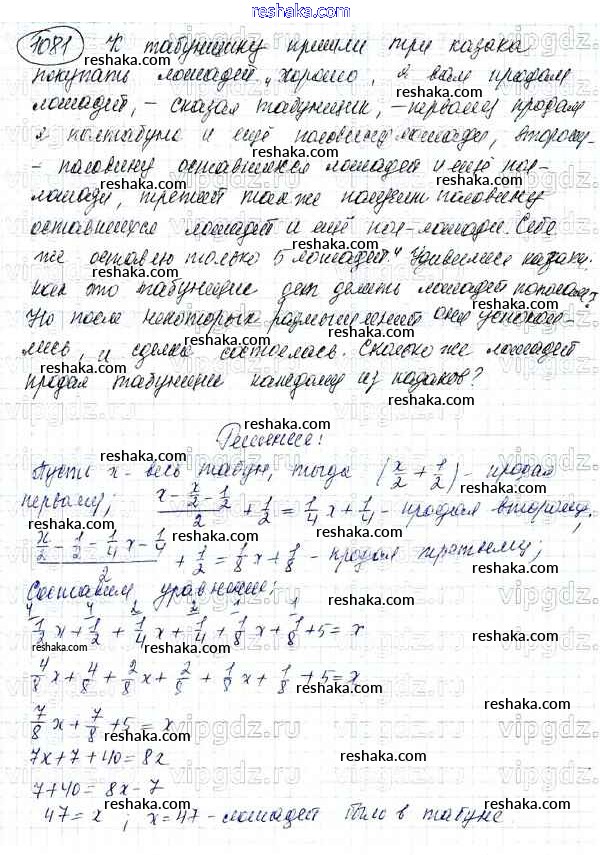 reshak.ru
1081 К табунщику пришли три казака
покупать лошадей. „Хорошо, я вам продам
лошадей, – сказал табунщик, – первому продам
я полтабуна и ещё половину лошади, второму-
- половину оставшихся лошадей и ещё пол-
лошади, третий также получит половину
оставшихся лошадей и ещё пол-лошади. Себе
же оставлю только 5 лошадей." Удивились казаки,
как это табунщик будет делить лошадей пополам?
Но после некоторых размышлений они успокои-
лись, и сделка состоялась. Сколько же лошадей
продал табунщик каждому из казаков?
Решение:
Пусть x - весь табун, тогда (x/2 + 1/2) - продал
первому; (x - x/2 - 1/2)/2 + 1/2 = 1/4 x + 1/4 - продал второму;
(x/2 - 1/2 - 1/4 x - 1/4)/2 + 1/2 = 1/8 x + 1/8 - продал третьему;
Составим уравнение:
1/2 x + 1/2 + 1/4 x + 1/4 + 1/8 x + 1/8 + 5 = x
4/8 x + 4/8 + 2/8 x + 2/8 + 1/8 x + 1/8 + 5 = x
7/8 x + 7/8 + 5 = x
7x + 7 + 40 = 8x
7 + 40 = 8x - 7
47 = x ; x = 47 - лошадей было в табуне